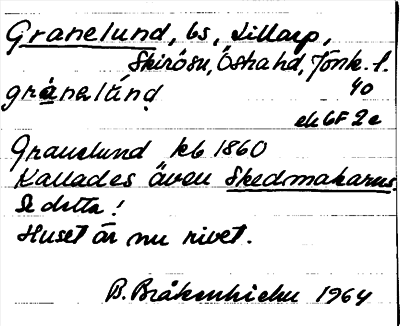 Granelund, bs, Lillarp,
Skirö sn, Östra hd, Jönk. l.
grànelúnd 40
ek 6F 2e
Granelund kb 1860
Kallades även Skedmakarns.
Se detta!
Huset är nu rivet.
B. Bråkenhielm 1964